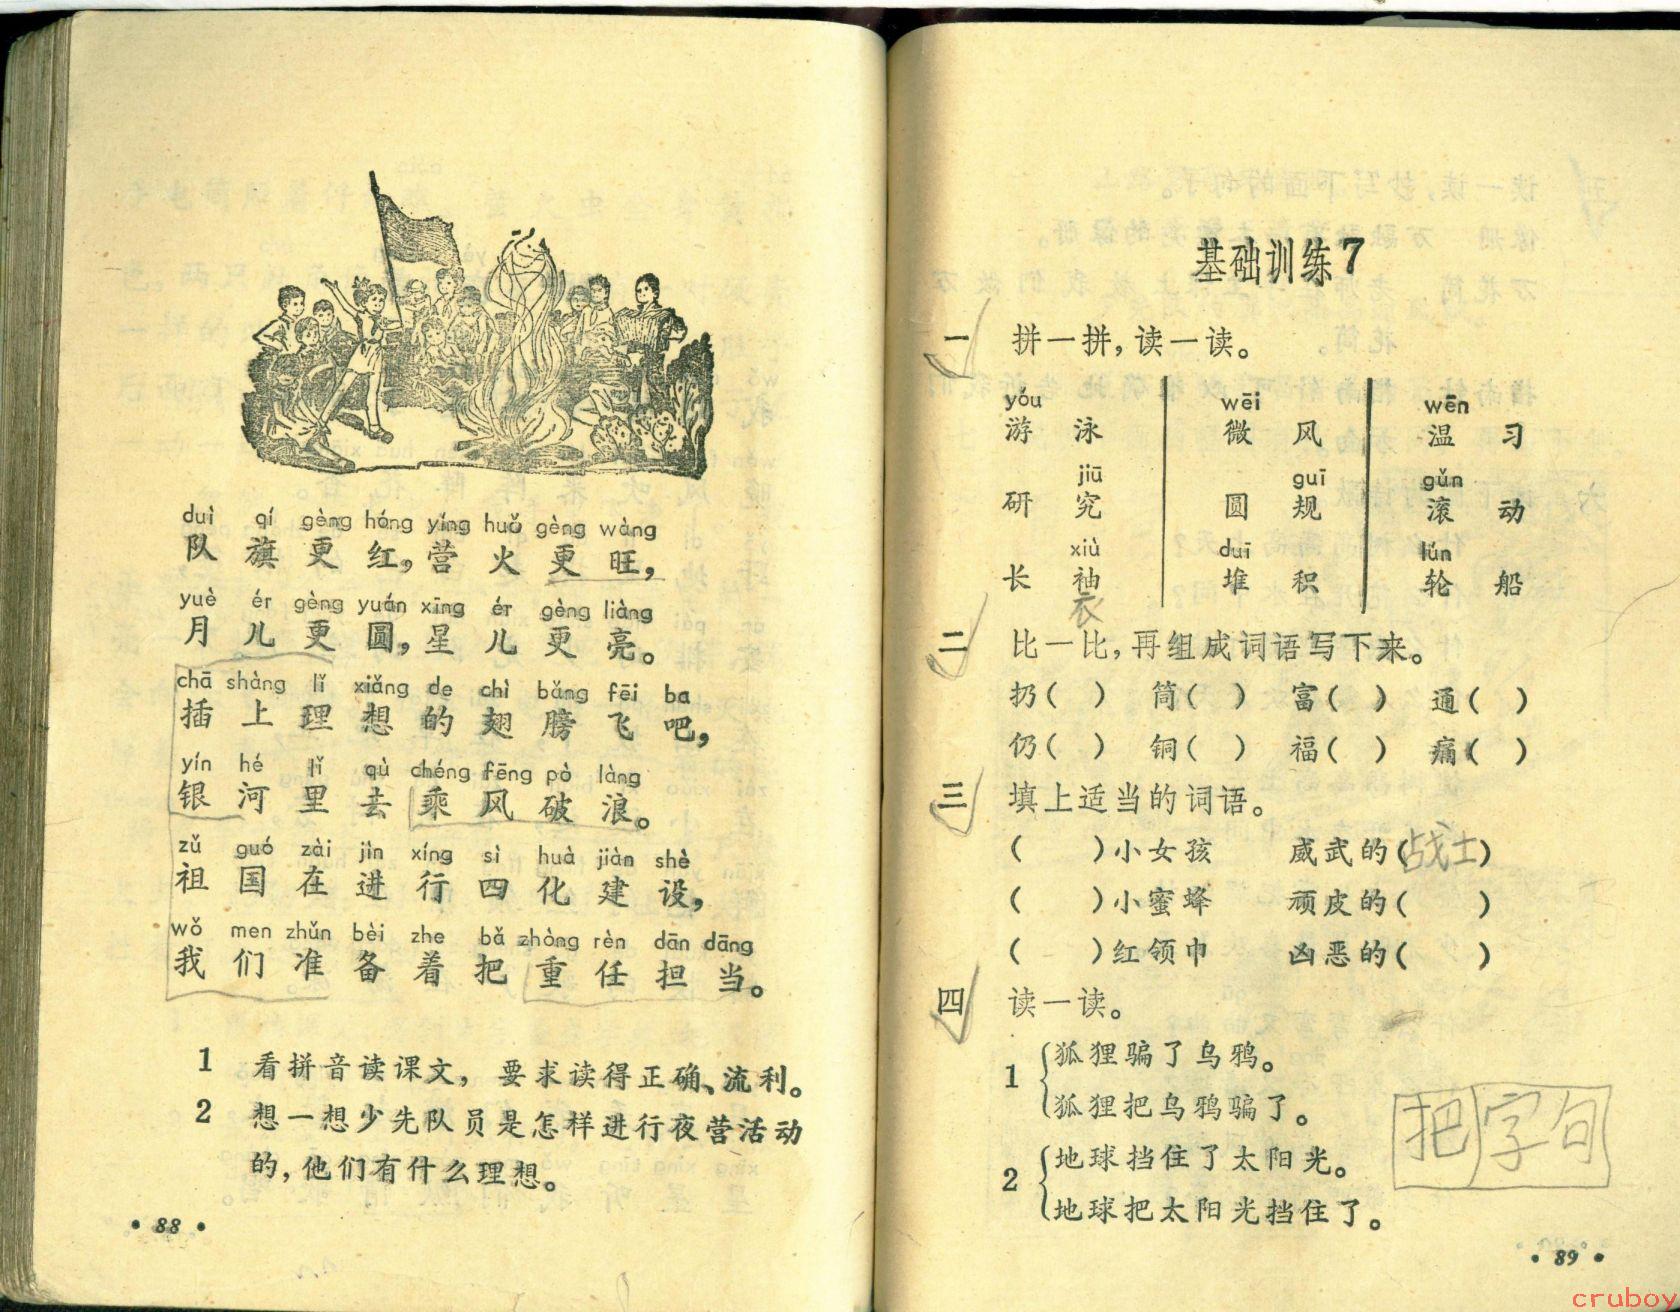 duì qí gèng hóng yíng huǒ gèng wàng
队旗更红，营火更旺，
yuè ér gèng yuán xīng ér gèng liàng
月儿更圆，星儿更亮。
chā shàng lǐ xiǎng de chì bǎng fēi ba
插上理想的翅膀飞吧，
yín hé lǐ qù chéng fēng pò làng
银河里去乘风破浪。
zǔ guó zài jìn xíng sì huà jiàn shè
祖国在进行四化建设，
wǒ men zhǔn bèi zhe bǎ zhòng rèn dān dāng
我们准备着把重任担当。
1 看拼音读课文，要求读得正确、流利。
2 想一想少先队员是怎样进行夜营活动
的，他们有什么理想。
• 88 •
基础训练7
一 拼一拼，读一读。
yóu wēi wēn
游泳 微风 温习
jiū guī gǔn
研究 圆规 滚动
xiù duī lún
长袖 堆积 轮船
衣
二 比一比，再组成词语写下来。
扔( ) 筒( ) 富( ) 通( )
仍( ) 铜( ) 福( ) 痛( )
三 填上适当的词语。
( )小女孩 威武的(战士)
( )小蜜蜂 顽皮的( )
( )红领巾 凶恶的( )
四 读一读。
1 狐狸骗了乌鸦。
狐狸把乌鸦骗了。
把字句
2 地球挡住了太阳光。
地球把太阳光挡住了。
• 89 •
cruboy